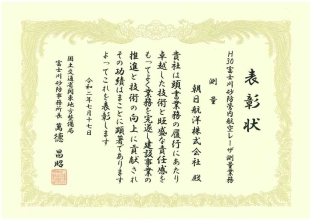 表彰状
H30富士川砂防管内航空レーザ測量業務
測量
朝日航洋株式会社 殿
貴社は頭書業務の履行にあたり
卓越した技術と旺盛な責任感を
もってよく業務を完遂し建設事業の
推進と技術の向上に貢献され
その功績はまことに顕著であります
よってこれを表彰します
令和二年七月十七日
国土交通省関東地方整備局
富士川砂防事務所長 萬徳 昌昭